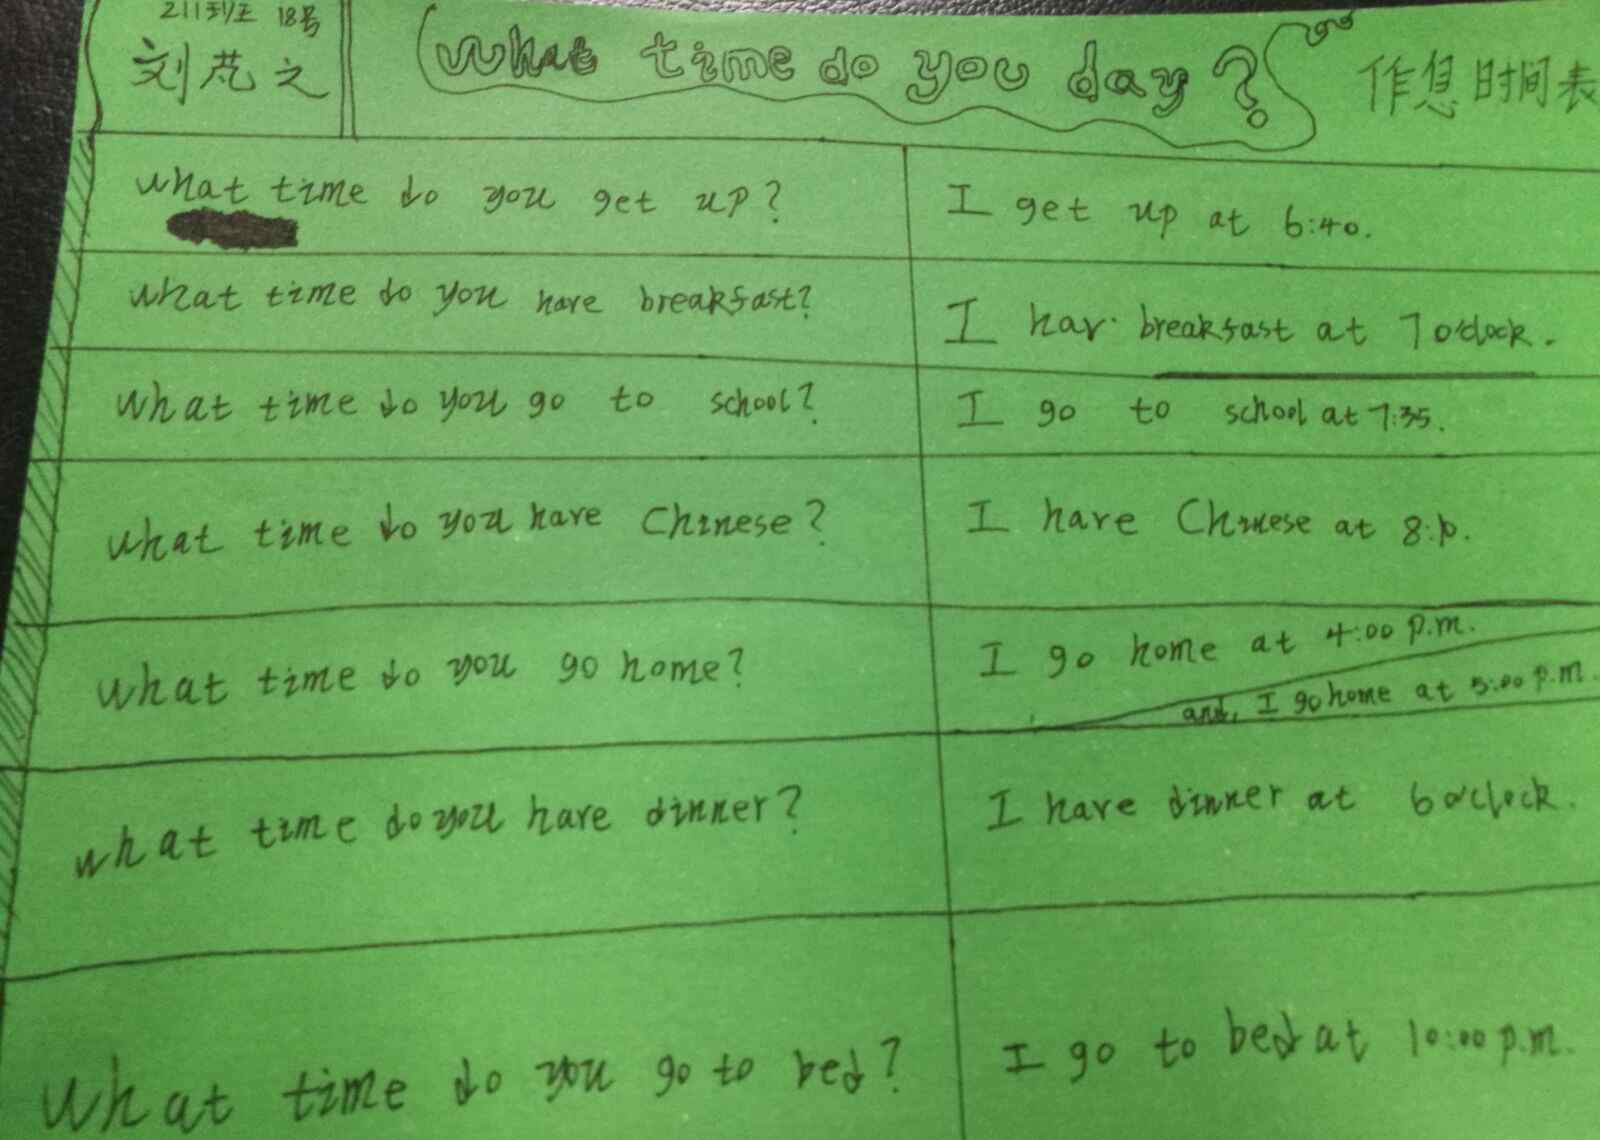 211班 18号
刘芃之
What time do you day?
作息时间表
what time do you get up?
I get up at 6:40.
what time do you have breakfast?
I hav breakfast at 7 o'clock.
what time do you go to school?
I go to school at 7:35.
what time do you have Chinese?
I have Chinese at
what time do you go home?
I go home at 4:00 p.m.
and, I go home at 5:00 p.m.
what time do you have dinner?
I have dinner at 6 o'clock.
What time do you go to bed?
I go to bed at 10:00 p.m.